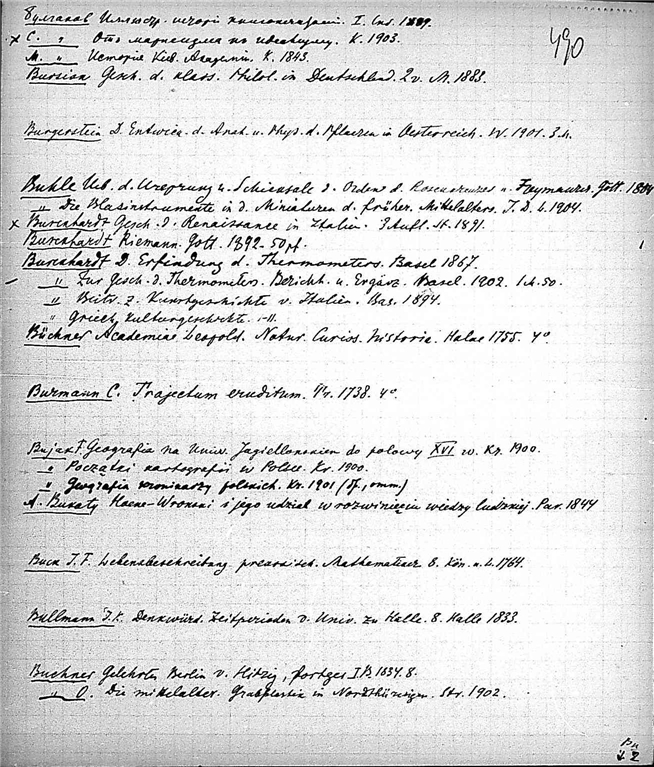 Булгаков Иллюстр. истор. книгопечатанія. I. Спб. 1889.
490
× С. " Отъ марксизма къ идеализму. К. 1903.
М. " Исторія Кіев. Академіи. К. 1843.
Bursian Gesch. d. klass. Philol. in Deutschland. 2 v. M. 1883.
Burgerstein D. Entwick. d. Anat. u. Phys. d. Pflanzen in Oesterreich. W. 1901. 3 h.
Buhle Ueb. d. Ursprung u. Schicksale d. Orden d. Rosenkreuzer u. Freymaurer. Gött. 1804
" Die Blasinstrumente in d. Miniaturen d. früher. Mittelalters. I. D. L. 1904.
× Burckhardt Gesch. d. Renaissance in Italien. 3 Aufl. St. 1891.
Burckhardt Riemann. Gött. 1892. 50 pf.
Burckhardt D. Erfindung d. Thermometers. Basel 1867.
– " Zur Gesch. d. Thermometers. Bericht. u. Ergänz. Basel. 1902. 1 h. 50.
" Beitr. z. Kunstgeschichte v. Italien. Bas. 1894.
" Griech. Kulturgeschichte. I–II.
Büchner Academiae Leopold. Natur. Curios. historia. Halae 1755. 4°.
Burmann C. Trajectum eruditum. 1738. 4°.
Bujak F. Geografia na Uniw. Jagiellonskim do polowy XVI w. Kr. 1900.
" Początki kartografii w Polsce. Kr. 1900.
" Geografia kroniarzy polskich. Kr. 1901
A. Bukaty Hoene-Wronski i jego udział w rozwinięciu wiedzy ludzkiej. Par. 1844
Buck J. F. Lebensbeschreibung preussisch. Mathematiker 8. Kön. u. L. 1764.
Bullmann J. K. Denkwürd. Zeitperioden d. Univ. zu Halle. 8. Halle 1833.
Buchner Gelehrtes Berlin v. Hitzig, fortges I B. 1834. 8.
" O. Die mittelalter. Grabplastik in Nordthüringen. Str. 1902.
Bu
2